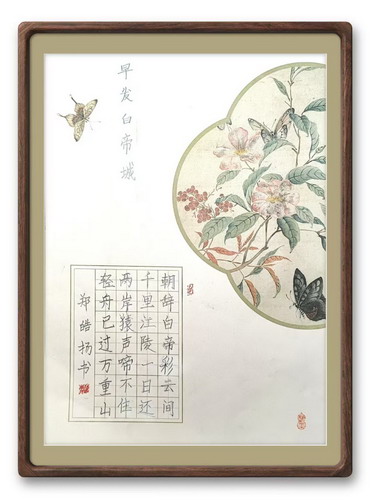 早发白帝城
朝辞白帝彩云间
千里江陵一日还
两岸猿声啼不住
轻舟已过万重山
郑皓扬书